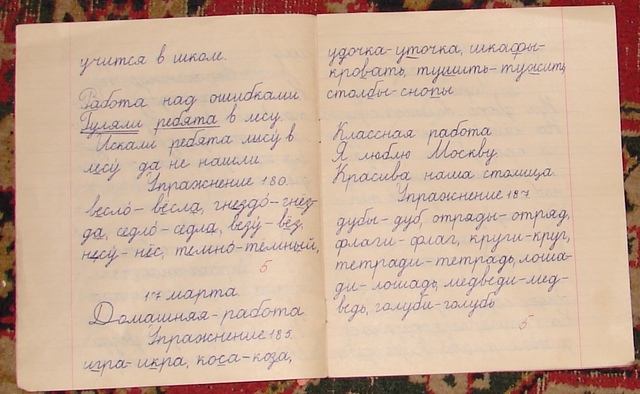 учится в школе.
Работа над ошибками
Гуляли ребята в лесу.
Искали ребята лису в
лесу да не нашли.
Упражнение 180.
весло́-вёсла, гнездо́-гнёз-
да, седло́-сёдла, везу́-вёз,
несу́-нёс, темно́-тёмный,
5
17 марта.
Домашняя-работа
Упражнение 185.
игра-икра, коса-коза,
удочка-уточка, шкафы-
кровать, тушить-тужить,
столбы-снопы
Классная работа
Я люблю Москву.
Красива наша столица.
Упражнение 187
дубы-дуб, отряды-отряд,
флаги-флаг, круги-круг,
тетради-тетрадь, лоша-
ди-лошадь, медведи-мед-
ведь, голуби-голубь
5